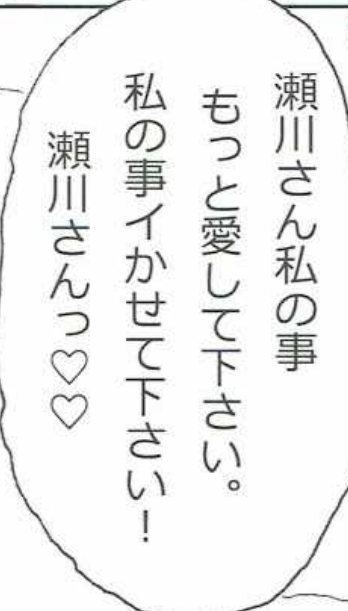 瀬川さん私の事
もっと愛して下さい。
私の事イかせて下さい！
瀬川さんっ♡♡